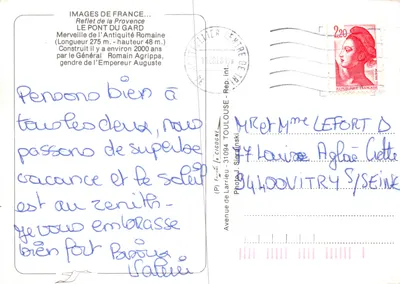 IMAGES DE FRANCE...
Reflet de la Provence
LE PONT DU GARD
Merveille de l'Antiquité Romaine
(Longueur 275 m. - hauteur 48 m.)
Construit il y a environ 2000 ans
par le Général Romain Agrippa,
gendre de l'Empereur Auguste
Pensons bien à
tous les deux, nous
passons de superbe
vacance et le soleil
est au zenith-
je vous embrasse
bien fort
Avenue de Larrieu 31094 TOULOUSE - Rep. int.
2,20
MR et Mme LEFORT D
Aglaé
94400 VITRY S/SEINE